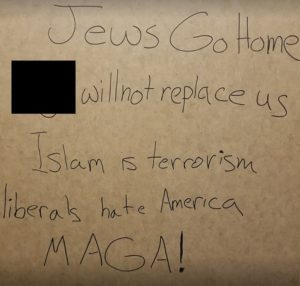 Jews Go Home
will not replace us
Islam is terrorism
liberals hate America
MAGA!